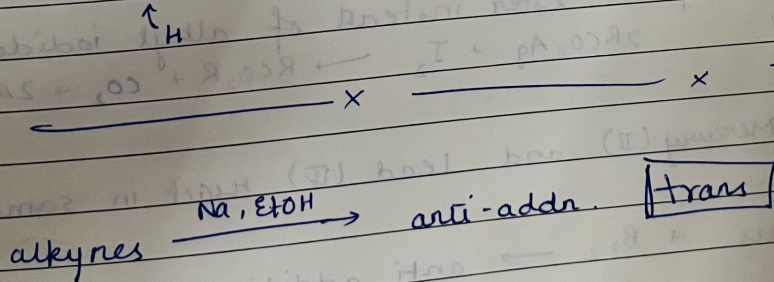 H
x x
alkynes Na, EtOH → anti-addn. trans